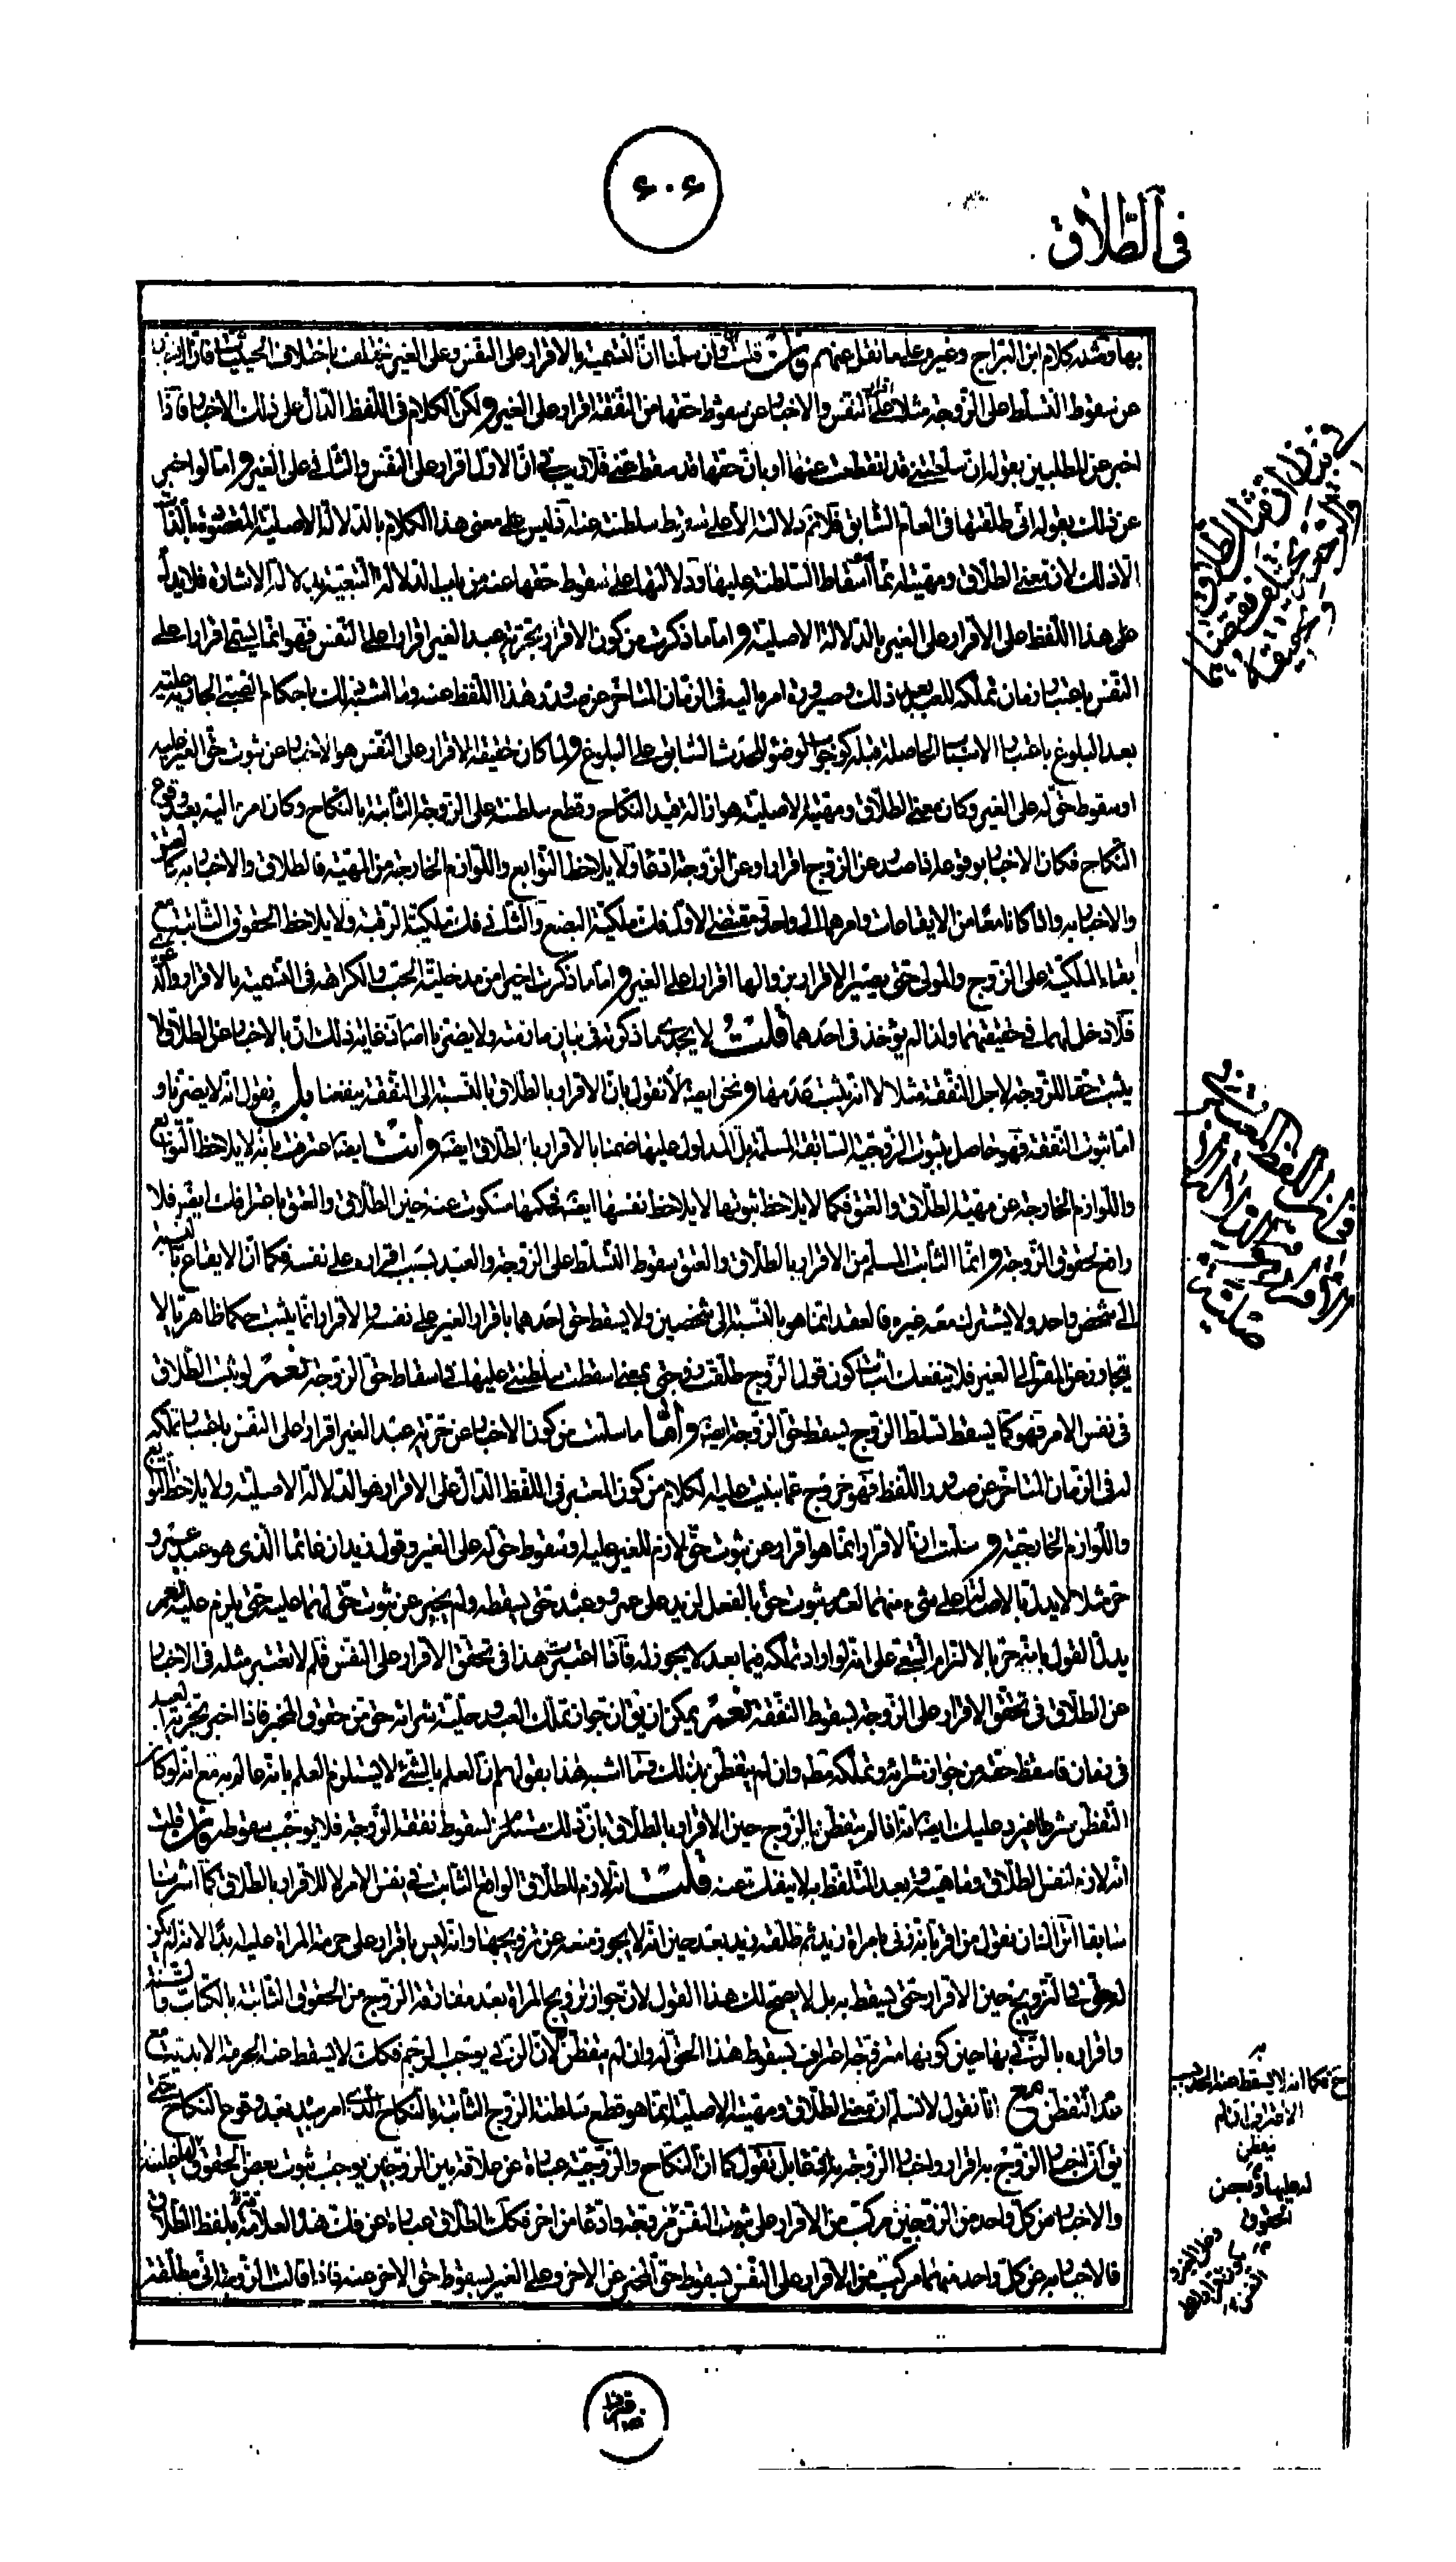 ۶۰۶
فی الطلاق
بها ومثله کلام ابن البراج وغیره علی ما نقل عنهم فان قلت وان سلمنا ان التسمیة بالاقرار علی النفس وعلی الغیر یختلف باختلاف الحیثیات فان الاخبار
عن سقوط التسلط علی الزوجة مثلا اقرار علی النفس والاخبار عن سقوط حقها من النفقة اقرار علی الغیر ولکن الکلام فی اللفظ الدال علی ذلک الاخبار فاذا
اخبر عن المطلبین بقوله ان سلطنتی قد انقطعت عنها او بان حقها قد سقط عنی فلا ریب فی ان الاول اقرار علی النفس والثانی علی الغیر واما لو اخبر
عن ذلک بقوله انی طلقتها فی العام السابق فلا تتم دلالته الا علی سقوط سلطنته عنها فلیس معنی هذا الکلام بالدلالة الاصلیة المقصودة بالذات
الا ذلک لان معنی الطلاق ومهیته انما اسقاط السلطنة علیها ودلالتها علی سقوط حقها عنه من باب الدلالة التبعیة بدلالة الاشارة فلا یدل
علی هذا اللفظ علی الاقرار علی الغیر بالدلالة الاصلیة واما ما ذکرت من کون الاقرار بحریة عبد الغیر اقرارا علی النفس فهو انما یسمی اقرارا علی
النفس باعتبار زمان تملکه للعبد بعد ذلک وصیرورة امره الیه فی الزمان المتاخر عن صدور هذا اللفظ عنه وما اشبه ذلک باحکام الصبی الجاریة علیه
بعد البلوغ باعتبار الاسباب الحاصلة قبله کوجوب الوضوء للحدث السابق علی البلوغ ولما کان حقیقة الاقرار علی النفس هو الاخبار عن ثبوت حق الغیر علیه
او سقوط حق له علی الغیر وکان معنی الطلاق ومهیته الاصلیة هو ازالة قید النکاح وقطع سلطنته علی الزوجة الثابتة بالنکاح وکان امره الیه بعد وقوع
النکاح فکان الاخبار بوقوعه قاصدا عن الزوج اقرارا وعن الزوجة ادعاء ولا یلاحظ التوابع واللوازم الخارجة من المهیة فالطلاق والاخبار به کالعتق
والاخبار به واذا کانا معا من الایقاعات وامرهما الی واحد فی مقتضی الاول فک ملکیة البضع والثانی فک ملکیة الرقبة ولا یلاحظ الحقوق الثابتة مع
بقاء الملکیة علی الزوج والمولی حتی یصیر الاقرار بزوالها اقرارا علی الغیر واما ما ذکرت اخیرا من مدخلیة الحب والکراهة فی التسمیة بالاقرار والدعوی
فلا دخل لهما فی حقیقتهما ولذا لم یؤخذ فی احدهما قلت لا یجدی ما ذکرته فی بیان مارمته ولا یضرنا اصلا اذ غایة ذلک ان بالاخبار عن الطلاق لا
یثبت حقا للزوجة لاجل النفقة مثلا لا انه یثبت عدمها ونحن ایضا لا نقول بان الاقرار بالطلاق بالنسبة الی النفقة ینفعنا بل نقول انه لا یضرنا و
اما ثبوت النفقة فهو حاصل بثبوت الزوجیة السابقة المسلمة بل المدلول علیها ضمنا بالاقرار بالطلاق ایضا وانت ایضا اعترفت بانه لا یلاحظ التوابع
واللوازم الخارجة عن مهیة الطلاق والعتق فکما لا یلاحظ ثبوتها لا یلاحظ نفسها ایضا فحکمها مسکوت عنه حین الطلاق والعتق باعترافک ایضا فلا
رافع لحقوق الزوجة وانما الثابت المسلم من الاقرار بالطلاق والعتق سقوط التسلط علی الزوجة والعبد بسبب اقراره علی نفسه فکما ان الایقاع بالنسبة
الی شخص واحد ولا یشترک معه غیره فالعقد انما هو بالنسبة الی شخصین ولا یسقط حق احدهما باقرار الغیر علی نفسه والاقرار انما یثبت حکما ظاهریا لا
یتجاوز عن المقر الی الغیر فلا ینفعک اثبات کون قول الزوج طلقت زوجتی بمعنی اسقطت سلطنتی علیها فی اسقاط حق الزوجة نعم لو ثبت الطلاق
فی نفس الامر فهو کما یسقط تسلط الزوج یسقط حق الزوجة ایضا واما ما سلمت من کون الاخبار عن حریة عبد الغیر اقرارا علی النفس باعتبار تملکه
له فی الزمان المتاخر عن صدور اللفظ فهو خروج عما بنیت علیه الکلام من کون المعتبر فی اللفظ الدال علی الاقرار هو الدلالة الاصلیة ولا یلاحظ التوابع
واللوازم الخارجیة وسلمت ان الاقرار انما هو اقرار عن ثبوت حق لازم للغیر علیه او سقوط حق له علی الغیر وقول زید ان غانما الذی هو عبد عمرو
حر مثلا لا یدل بالاصالة علی شیء منهما لعدم ثبوت حق بالفعل لزید علی عمرو وعبده حتی یسقطه ولم یخبر عن ثبوت حق لهما علیه حتی یلزم علیه نعم
یدل القول بانه حر بالالتزام التبعی علی انه لو اراد تملکه فیما بعد لا یجوز له فاذا اعتبرت هذا فی تحقق الاقرار علی النفس فلم لا تعتبر مثله فی الاخبار
عن الطلاق فی تحقق الاقرار علی الزوجة بسقوط النفقة نعم یمکن ان یق ان جواز تملک العبد وحلیة شرائه حق من حقوق المخبر فاذا اخبر بحریة العبد
فی زمان فاسقط حقه من جواز شرائه وتملکه مطلقا وان لم یتفطن بذلک فما اشبه هذا بقولهم ان العلم بالشیء لا یستلزم العلم بانه عالم به مع انه لو کان
التفطن شرطا فیرد علیک ایضا انه اذا لم یتفطن الزوج حین الاقرار بالطلاق بان ذلک مستلزم لسقوط نفقة الزوجة فلا یوجب سقوطه فان قلت
انه لازم لنفس الطلاق وماهیته وبعد التلفظ به لا ینفک عنه قلت انه لازم للطلاق الواقع الثابت فی نفس الامر لا للاقرار بالطلاق کما اشرنا
سابقا الی ان نقول من اقر بانه زنی بامراة زید ثم طلقه زید بعد حین انه لا یجوز منعه عن تزویجها وانه لیس باقرار علی حرمة المراة علیه ابدا لانه لم یکن
له حق فی التزویج حین الاقرار حتی یسقط به بل لا یصح لک هذا القول لان جواز تزویج المراة بعد مفارقة الزوج من الحقوق الثابتة بالکتاب والسنة
واقراره بالزنی بها حین کونها مزوجة اعتراف بسقوط هذا الحق له وان لم یتفطن لان الزنی یوجب الرجم فکما لا یسقط عنه الحرمة الابدیة مع
عدم التفطن مع انا نقول لا نسلم ان معنی الطلاق ومهیته الاصلیة انما هو قطع سلطنة الزوج الثابتة بالنکاح الذی امره بیده بعد وقوع النکاح حتی
یق ان اخبار الزوج به اقرار واخبار الزوجة به ادعاء بل نقول کما ان النکاح والزوجیة عبارة عن علاقة بین الزوجین یوجب ثبوت بعض الحقوق من الجانبین
والاخبار من کل واحد من الزوجین مرکب من الاقرار علی ثبوت النفس من وجه وادعاء من اخر فکک الطلاق عبارة عن فک هذه العلاقة بلفظ الطلاق
فالاخبار به عن کل واحد منهما مرکب من الاقرار علی النفس بسقوط حق المخبر عن الاخر وعلی الغیر بسقوط حق الاخر عنه فاذا قالت الزوجة انی مطلقة